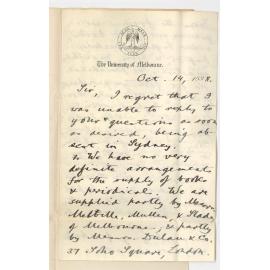 The University of Melbourne.
Oct. 14, 1898.
Sir, I regret that I
was unable to reply to
your questions as soon
as desired, being ab-
sent in Sydney.
We have no very
definite arrangements
for the supply of books
& periodical. We are
supplied partly by Messrs
Melville, Mullen, & Slade,
of Melbourne, & partly
by Messrs. Dulau & Co.
37 Soho Square, London.